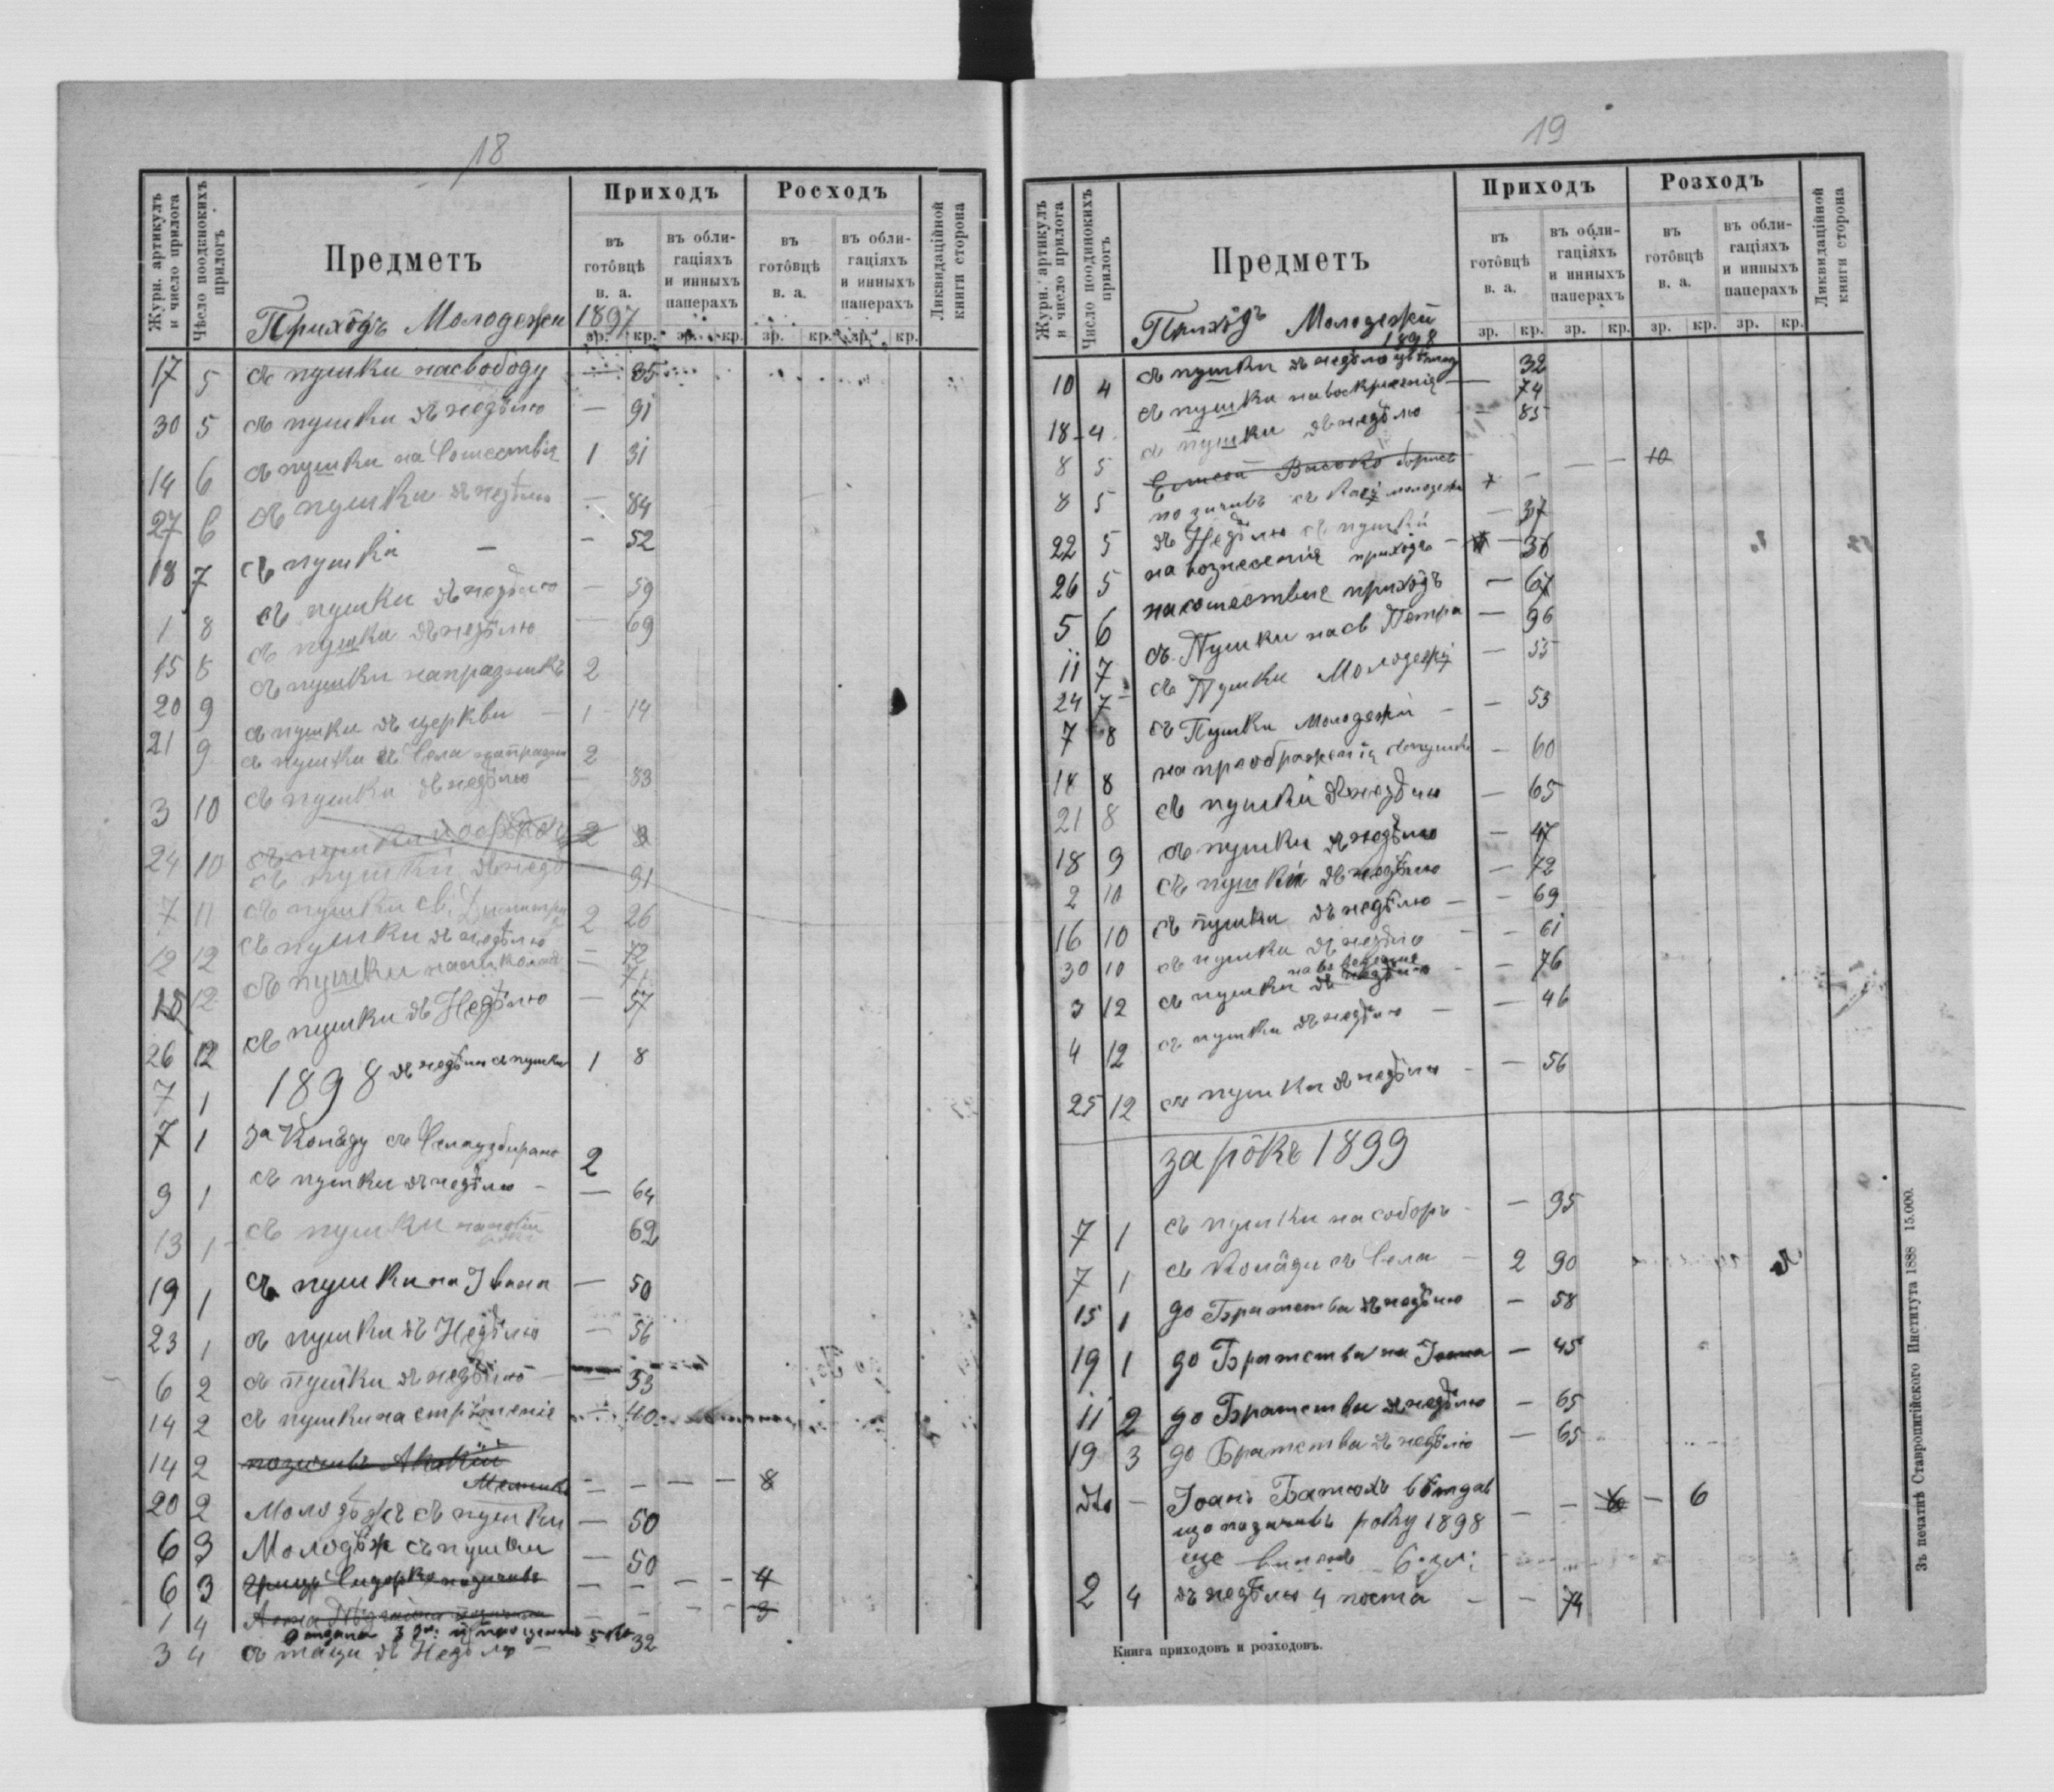 18
Журн. артикулъ и число прилога
Число поодинокихъ прилогъ
Предметъ
Приходъ
Росходъ
Ликвидаційной книги сторона
въ готôвцѣ в. а.
въ облигаціяхъ и инныхъ паперахъ
въ готôвцѣ в. а.
въ облигаціяхъ и инныхъ паперахъ
Приходъ Молодежи 1897
зр. кр. зр. кр. зр. кр. зр. кр.
17 5 съ пушки на свободу — 85
30 5 съ пушки въ недѣлю — 91
14 6 съ пушки на Сошествія 1 31
27 6 съ пушки въ недѣлю — 84
18 7 съ пушки — — 52
1 8 съ пушки въ недѣлю — 59
15 8 съ пушки въ недѣлю — 69
20 9 съ пушки на празникъ 2
21 9 съ пушки въ церкви — 1 14
съ пушки съ Села 2
3 10 съ пушки въ недѣлю — 83
24 10 съ пушки въ недѣ 91
7 11 съ пушки св. Димитрія 2 26
12 12 съ пушки въ недѣлю — 72
18 12 съ пушки — 71
26 12 съ пушки въ Недѣлю — 57
7 1 1898 въ недѣлю съ пушки 1 8
7 1 За Коляду съ Села 2
9 1 съ пушки въ недѣлю — — 64
13 1 съ пушки 62
19 1 съ пушки на Івана — 50
23 1 съ пушки въ Недѣлю — 56
6 2 съ пушки въ недѣлю — 53
14 2 съ пушки на стрѣтеніе — 40
14 2 позичивъ — — — — 8
20 2 Молодѣжъ съ пушки — 50
6 3 Молодѣж съ пушки — 50
6 3 Грицъ Сидорко позичивъ — — — — 4
1 4 Анна — — — — 3
3 4 съ таци въ Недѣлю — 32
19
Журн. артикулъ и число прилога
Число поодинокихъ прилогъ
Предметъ
Приходъ
Розходъ
Ликвидаційной книги сторона
въ готôвцѣ в. а.
въ облигаціяхъ и инныхъ паперахъ
въ готôвцѣ в. а.
въ облигаціяхъ и инныхъ паперахъ
Приходъ Молодежи 1898
зр. кр. зр. кр. зр. кр. зр. кр.
10 4 съ пушки въ недѣлю 32
съ пушки на воскресенія — 74
18 4 съ пушки въ недѣлю — 85
8 5 — — 10
8 5 позичивъ съ молодежи
22 5 въ Недѣлю съ пушки — 37
26 5 на вознесенія приходъ — 36
5 6 на сошествіе приходъ — 67
11 7 съ Пушки на св Петра — 96
24 7 съ Пушки Молодежи — 55
7 8 съ Пушки Молодежи — — 53
18 8 на преображенія — 60
21 8 съ пушки въ недѣлю — 65
18 9 съ пушки въ недѣлю — 47
2 10 съ пушки въ недѣлю — 72
16 10 съ пушки въ недѣлю — — 69
30 10 съ пушки въ недѣлю — — 61
3 12 съ пушки на введеніе — — 76
4 12 съ пушки въ недѣлю — — 46
25 12 съ пушки въ недѣлю — — 56
за рôкъ 1899
7 1 съ пушки на соборъ — — 95
7 1 съ Коляди съ Села — 2 90
15 1 до Братства въ недѣлю — 58
19 1 до Братства на — 45
11 2 до Братства въ недѣлю — 65
19 3 до Братства въ недѣлю — 65
dto — Іоанъ — — — 6
що позичивъ року 1898 —
ще 6 зл:
2 4 въ недѣлю 4 поста — — 74
Книга приходовъ и розходовъ.
Зъ печатнѣ Ставропигійского Института 1888 15.000.